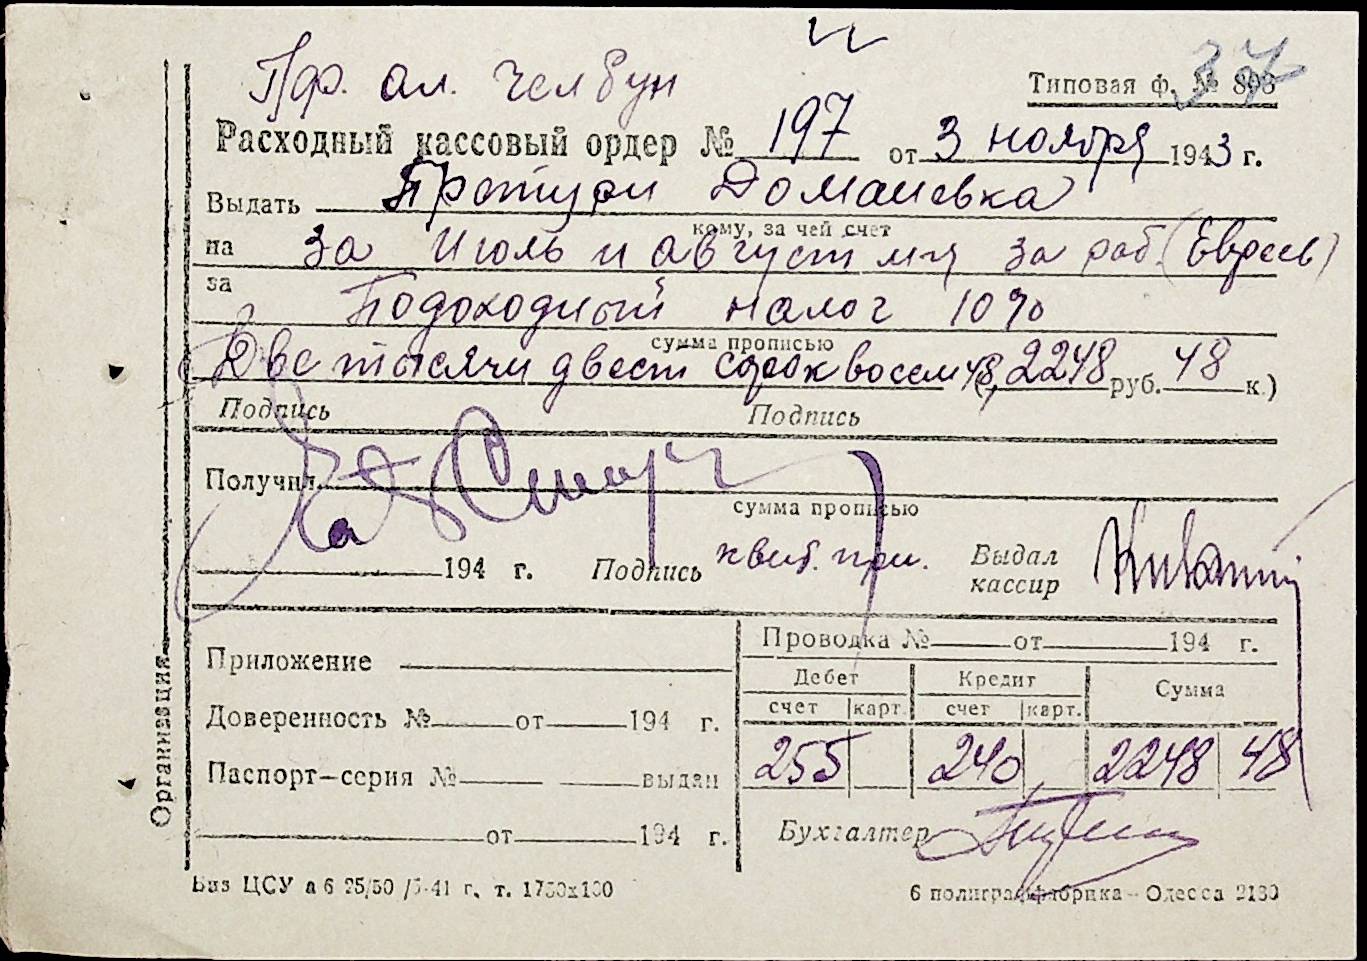 37
Пдр. ал. Челбун
Типовая ф. № 803
Расходный кассовый ордер № 197 от 3 ноября 1943 г.
Выдать Претури Доманевка
кому, за чей счет
на за Июль и август м-ц за раб. (Евреев)
за Подоходный налог 10%
сумма прописью
Две тысячи двест сорок восем 48 (2248 руб. 48 к.)
Подпись Подпись
Получил
сумма прописью
194 г. Подпись квит. при. Выдал
кассир
Организация
Приложение
Доверенность № от 194 г.
Паспорт-серия № выдан
от 194 г.
Проводка № от 194 г.
Дебет Кредит Сумма
счет карт. счет карт.
255 240 2248 48
Бухгалтер
Биз ЦСУ а 6 25/50 /5-41 г. т. 1750х100
6 полиграффабрика - Одесса 2130